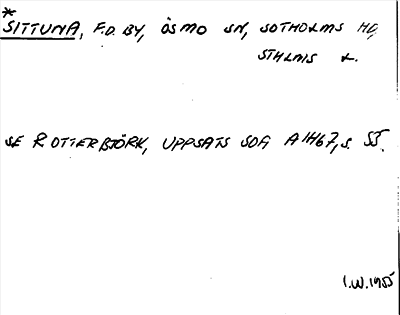 *
SITTUNA, F.D. BY, ÖSMO SN, SOTHOLMS HD,
STHLMS L.
SE R OTTERBJÖRK, UPPSATS SOA AH67, S. 55.
I.W. 1955